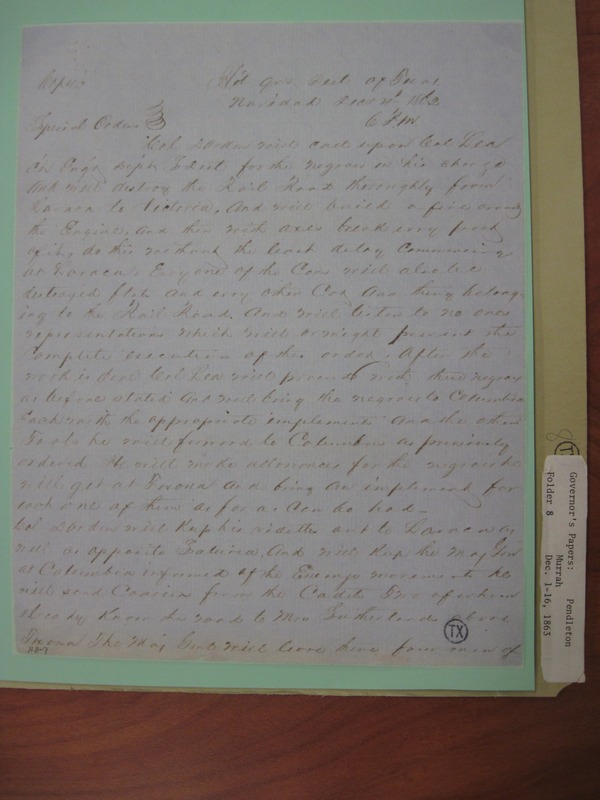 Copie
Hd Qrs Dist of Texas
Navidad Decr 1863
6 P.M
Special Orders
Col Borden will call upon Col Lea
for the negroes in his charge
And will destroy the Rail Road thoroughly from
Lavaca to Victoria, And will build a fire around
the Engine, And then with axes break evry part
of it, do this without the least delay Commencing
at Lavaca. Evry one of the Cars will also be
destroyed And evry other Car And thing belong-
ing to the Rail Road. And will listen to no ones
representations which will or might prevent the
Complete execution of this order. After the
work is done Col Lea will proceed with these negroes
as before stated And will bring the negroes to Columbia
Each with the appropriate implements And the other
Tools he will forward to Columbia as previously
ordered He will make allowances for the negroes he
will get at Texana And bring an implement for
each one of them as far as can be had -
Col Borden will Keep his videttes out to Lavaca as
well as opposite Saluria, And will Keep the Maj Genl
at Columbia informed of the Enemys movements he
will send Couriers from the Cadets two of whom
already Know the road to Mrs Sutherlands above
Texana The Maj Genl will leave here four men of
TX
Governor's Papers: Pendleton
Murrah
Folder 8 Dec. 1-16, 1863